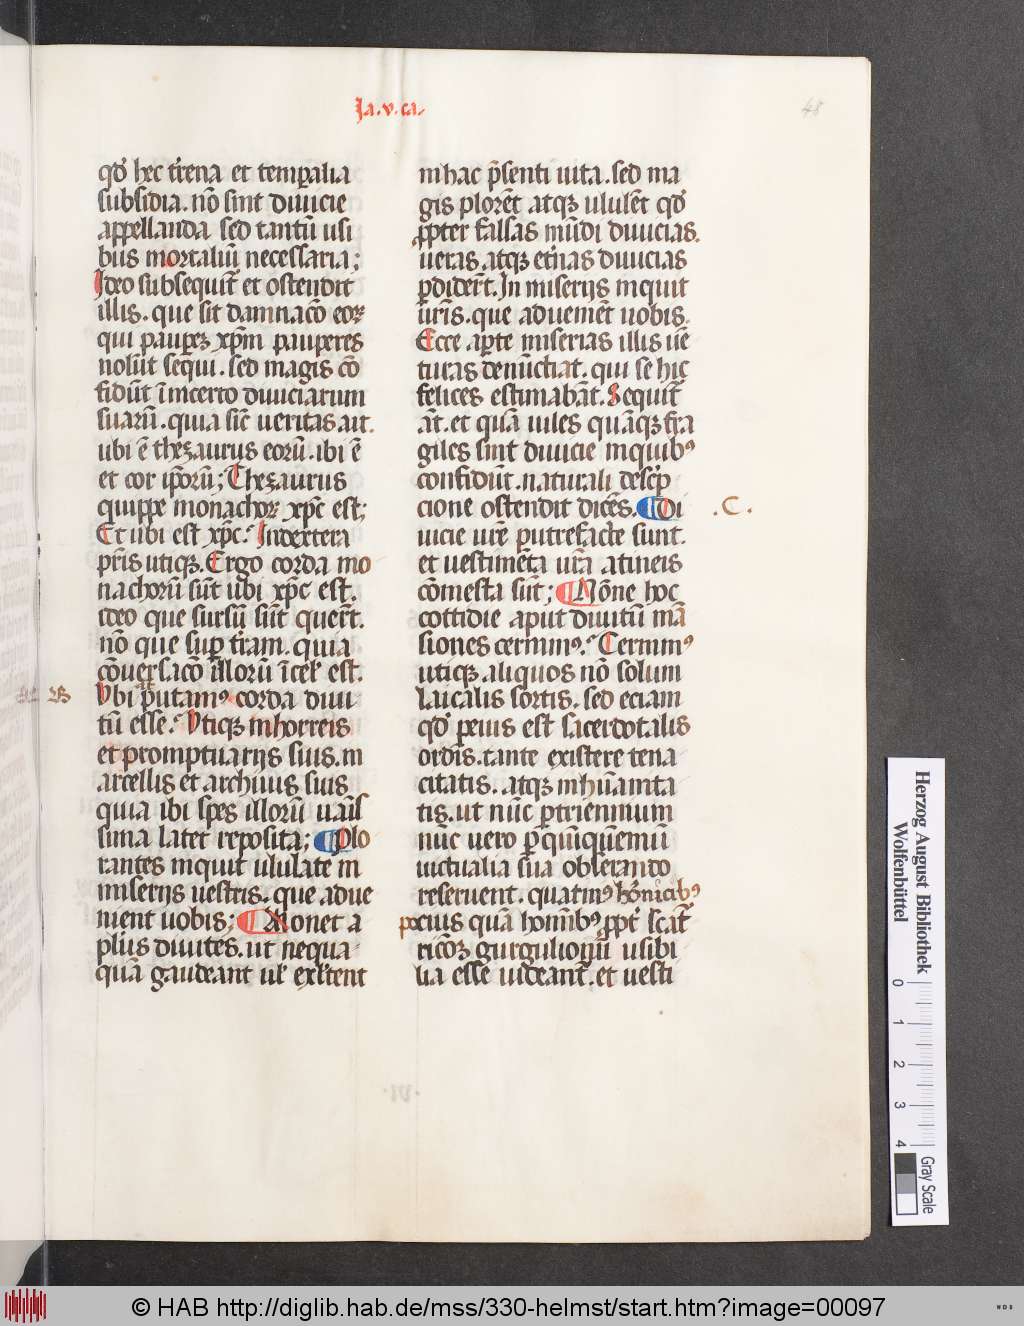 Ja.v.ca.
48
qď hec tr̄ena et temꝑalia
subsidia. nō sint diuicie
appellanda sed tantū usi
bus mortaliū necessaria;
Jdeo subsequit᷑ et ostendit
illis. que sit damnacō eoꝝ
qui pauꝑeꝫ xp̄m pauperes
nolūt sequi. sed magis cō
fidūt ī incerto diuiciarum
suarū. quia sic̄ ueritas ait.
ubi ē thezaurus eorū. ibi ē
et cor ip̄orū; Thezaurus
quippe monachoꝝ xp̄c est;
Et ubi est xp̄c? Jndextera
pr̄is utiqꝫ. Ergo corda mo
nachorū sūt ubi xp̄c est.
ideo que sursū sūt querēt.
nō que suꝑ tr̄am. quia
cōuersacō illorū ī cel̄ est.
Vbi putamꝰ corda diui
tū esse? Vtiqꝫ in horreis
et promptuarijs suis. in
arcellis et archiuis suis
quia ibi spes illorū uanis
sima latet reposita; ¶ Plo
rantes inquit ululate in
miserijs uestris. que adue
nient uobis; ¶ Monet a
pl̄us diuites. ut nequa
quā gaudeant ul̄ exl̄tent
in hac p̄senti uita. sed ma
gis plorēt atqꝫ ululēt qď
ꝓpter falsas mūdi diuicias.
ueras. atqꝫ et̄nas diuicias
ꝑdider̄t. Jn miserijs inquit
ur̄is. que aduemēt uobis.
Ecce aꝑte miserias illis uē
turas denūctiat. qui se hic
felices estimabāt. Sequit᷑
āt. et quā uiles quāqꝫ fra
giles sint diuicie in quibꝰ
confidūt. naturali descp̄
cione ostendit dicēs. ¶ Di
.C.
uicie ur̄e putrefacte sunt.
et uestimēta ur̄a a tineis
cōmesta sūt; ¶ Nōne hoc
cottidie aput diuitū mā
siones cernimꝰ? Cernimꝰ
utiqꝫ. aliquos nō solum
laicalis sortis. sed eciam
qď peius est sacerdotalis
ordīs. tante existere tena
citatis. atqꝫ inhūanita
tis. ut nūc ꝑ triennium
nūc uero ꝑ quīquēniū
uictualia sua obserando
reseruent. quatinꝰ
pocius quā hominibꝰ ꝓpt᷑
gurgulionū usibi
lia esse uideant᷑. et uesti
© HAB http://diglib.hab.de/mss/330-helmst/start.htm?image=00097
Herzog August Bibliothek
Wolfenbüttel
0 1 2 3 4
Gray Scale